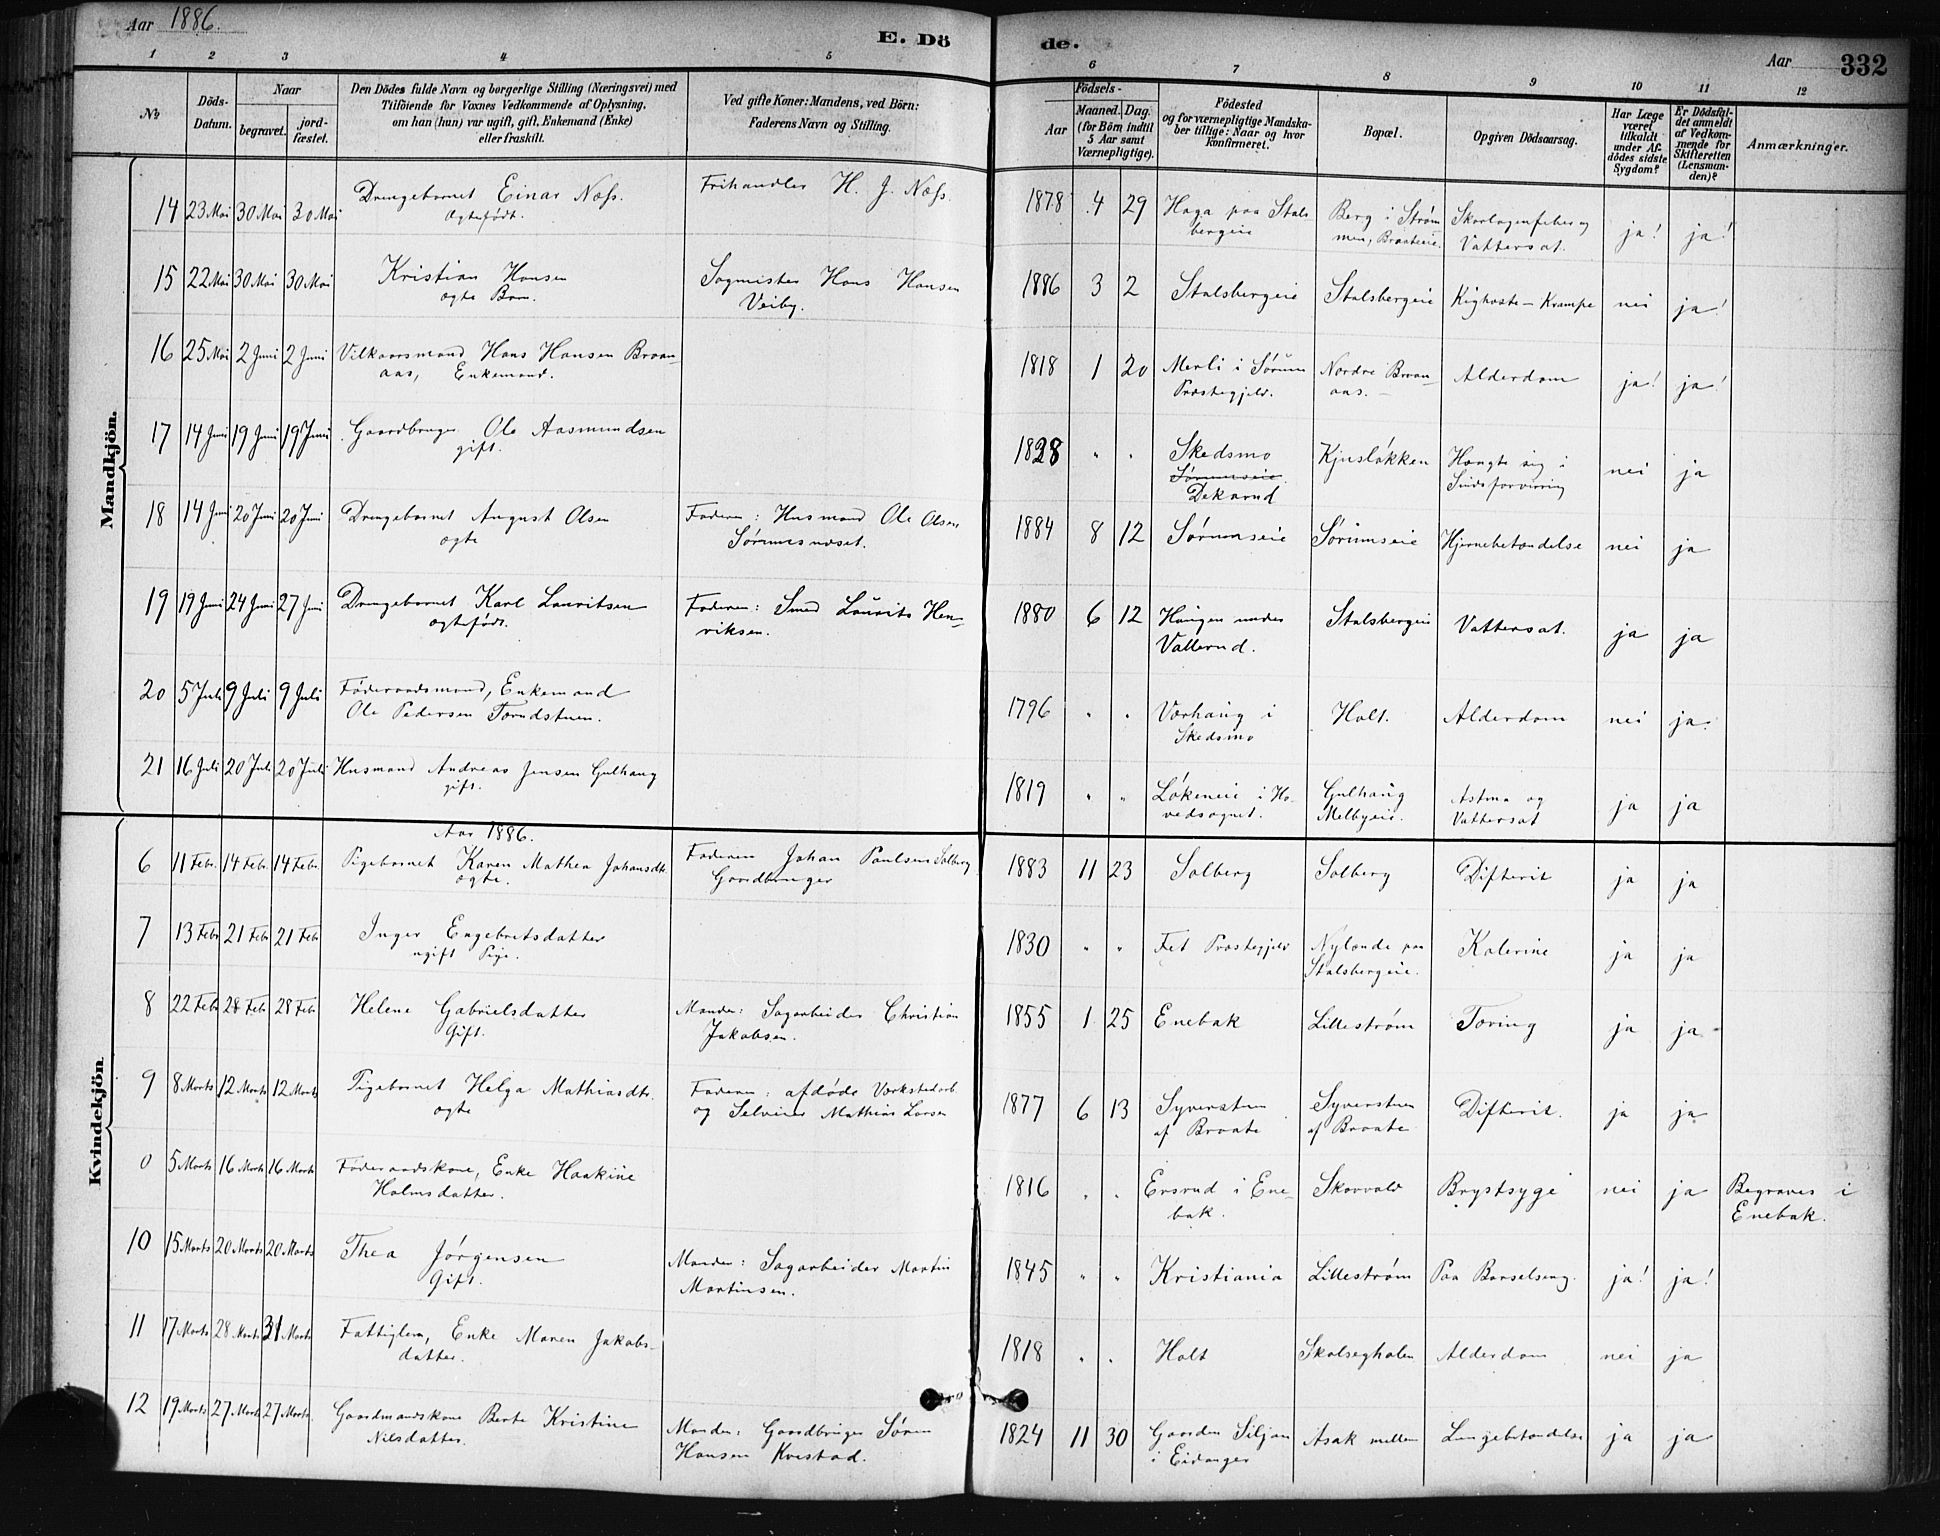 Aar 1886.
E. Dö
de.
Aar 332
1 2 3 4 5 6 7 8 9 10 11 12
No
Döds-Datum.
Naar
begravet.
jord-fæstet.
Den Dödes fulde Navn og borgerlige Stilling (Næringsvei) med
Tilföiende for Voxnes Vedkommende af Oplysning,
om han (hun) var ugift, gift, Enkemand (Enke)
eller fraskilt.
Ved gifte Koner: Mandens, ved Börn:
Faderens Navn og Stilling.
Födsels-
Aar
Maaned. Dag.
(for Börn indtil
5 Aar samt
Værnepligtige).
Födested
og for værnepligtige Mandska-
ber tillige: Naar og hvor
konfirmeret.
Bopæl.
Opgiven Dödsaarsag.
Har Læge
været
tilkaldt
under Af-
dödes sidste
Sygdom?
Er Dödsfal-
det anmeldt
af Vedkom-
mende for
Skifteretten
(Lensman-
den)?
Anmærkninger.
Mandkjön.
14 23 Mai 30 Mai 30 Mai Drengebarnet Einar Næss. Frihandler H. J. Næss. 1878 4 29 Haga paa Stals Berg i Strøm Skarlagensfeber og ja! ja!
ægtefødt. bergeie men, Braateeie. Vattersot.
15 22 Mai 30 Mai 30 Mai Kristian Hansen Sagmester Hans Hansen 1886 3 2 Stalsbergeie Stalsbergeie Kighoste - Krampe nei ja!
ægte Barn. Veiby.
16 25 Mai 2 Juni 2 Juni Vilkaarsmand Hans Hansen Braan- 1818 1 20 Merli i Sørum Nordre Braan- Alderdom ja! ja!
aas, Enkemand. Præstegjeld. aas.
17 14 Juni 19 Juni 19 Juni Gaardbruger Ole Aasmundsen 1828 " " Skedsmo Kjusløkken Hængte sig i nei ja
gift. Sørumseie Sindsforvirring
Dekarud
18 14 Juni 20 Juni 20 Juni Drengebarnet August Olsen Faderen: Husmand Ole Olsen 1884 8 12 Sørumseie Sørumseie Hjernebetændelse nei ja
ægte Sørumsnæset.
19 19 Juni 24 Juni 27 Juni Drengebarnet Karl Lauritsen Faderen: Smed Laurits Hen- 1880 6 12 Haugen under Stalsbergeie Vattersot. ja ja
ægtefødt. riksen. Vallerud.
20 5 Juli 9 Juli 9 Juli Føderaadsmand, Enkemand 1796 " " Vorhaug i Holt. Alderdom nei ja.
Ole Pedersen Torudstuen. Skedsmo
21 16 Juli 20 Juli 20 Juli Husmand Andreas Jensen Gulhaug 1819 " " Løkeneie i Ho- Gulhaug Astma og ja ja
gift. vedsognet. Melbyeie. Vattersot
Kvindekjön
Aar 1886.
6 11 Febr. 14 Febr. 14 Febr. Pigebarnet Karen Mathea Johansdtr. Faderen Johan Paulsen Solberg 1883 11 23 Solberg Solberg Difterit ja ja
ægte. Gaardbruger
7 13 Febr 21 Febr 21 Febr Inger Engebretsdatter 1830 " " Fet Præstegjeld Nylende paa Kolerine ja ja
ugift Pige. Stalsbergeie.
8 22 Febr 28 Febr. 28 Febr Helene Gabrielsdatter Manden: Sagarbeider Christian 1855 1 25 Enebak Lillestrøm Tæring ja ja
Gift. Jakobsen.
9 8 Marts 12 Marts 12 Marts Pigebarnet Helga Mathiasdtr. Faderen: afdøde Værkstedarb. 1877 6 13 Syverstuen Syverstuen Difterit. ja ja
ægte og Selveier Mathias Larsen af Braate af Braate
0 5 Marts 16 Marts 16 Marts Føderaadskone, Enke Haakine 1816 " " Ersrud i Ene- Skovvald Brystsyge nei ja Begraves i
Holmsdatter. bak. Enebak.
10 15 Marts 20 Marts 20 Marts Thea Jørgensen Manden: Sagarbeider Martin 1845 " " Kristiania Lillestrøm Paa Barselseng. ja! ja!
Gift. Martinsen.
11 17 Marts 28 Marts 31 Marts Fattiglem, Enke Maren Jakobs- 1818 " " Holt Skolsegholen Alderdom nei ja
datter.
12 19 Marts 27 Marts 27 Marts. Gaardmandskone Berte Kristine Manden: Gaardbruger Søren 1824 11 30 Gaarden Siljan Asak mellem Lungebetændelse ja ja
Nilsdatter. Hansen Kvestad. i Eidanger